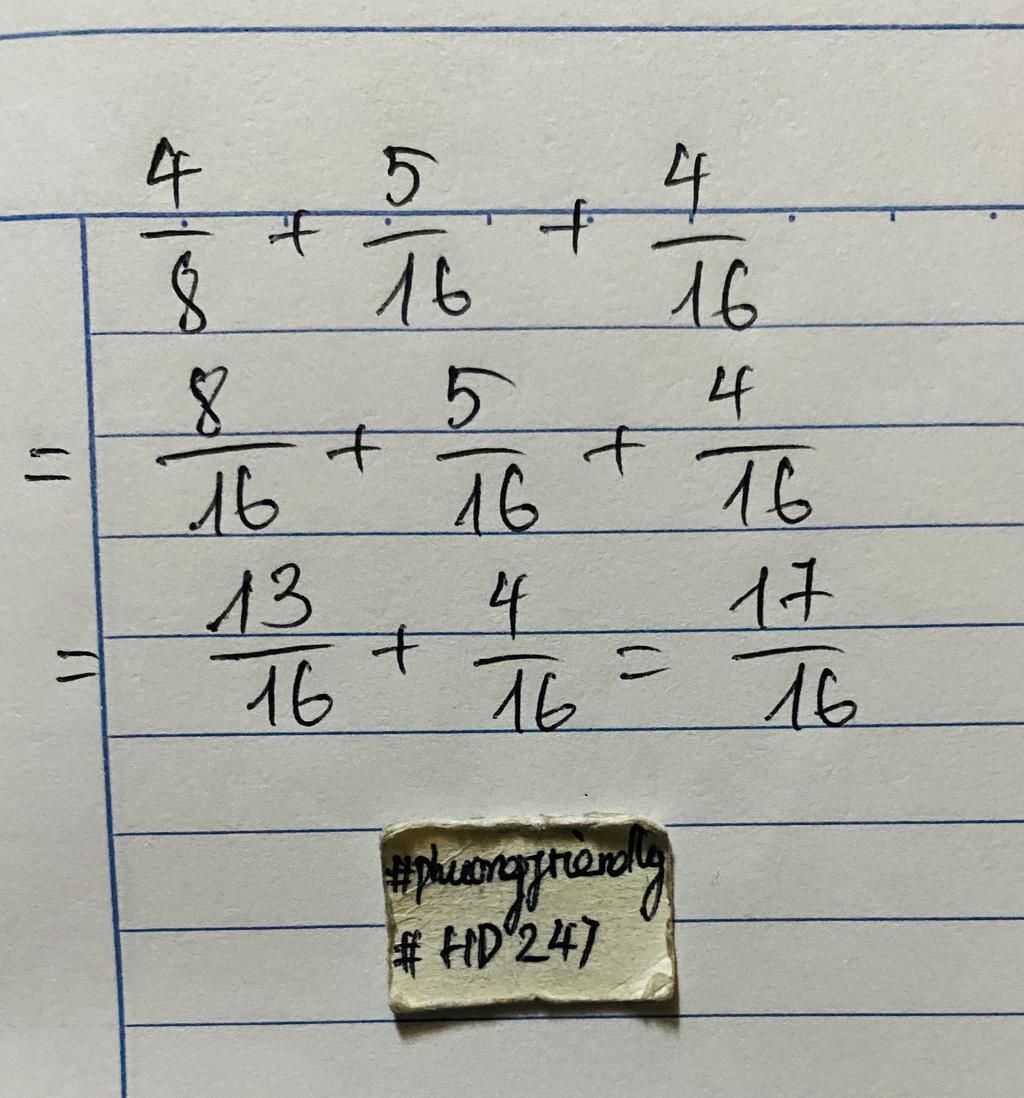 4/8 + 5/16 + 4/16
= 8/16 + 5/16 + 4/16
= 13/16 + 4/16 = 17/16
#phuongfriendly
# HD247